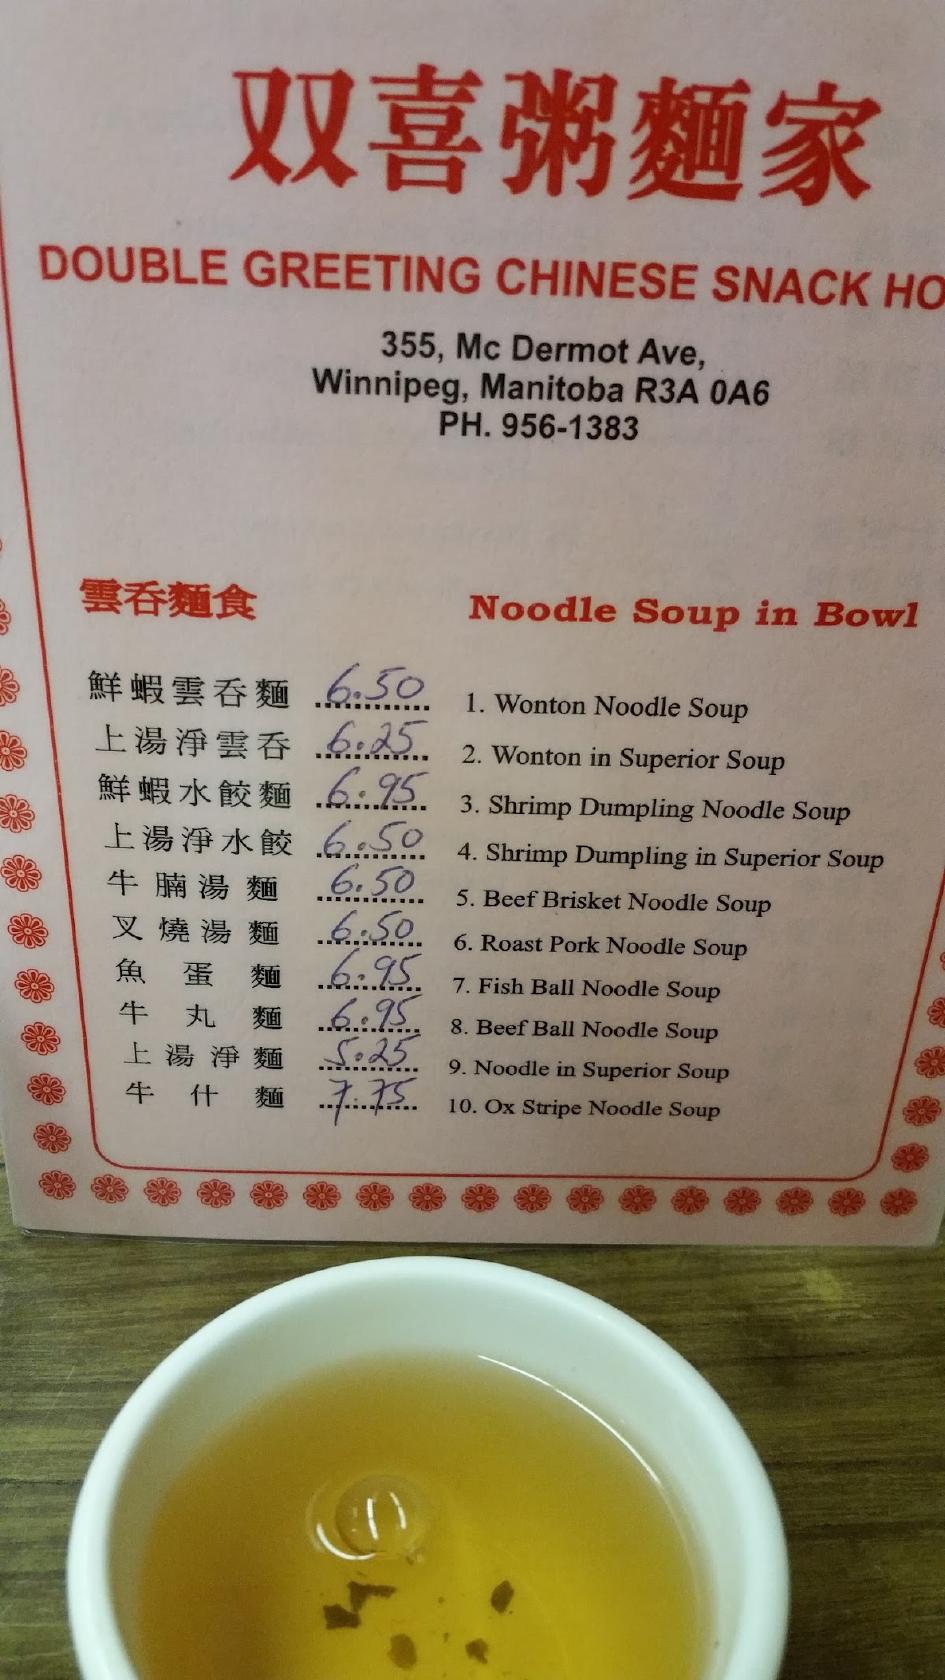 双喜粥麵家
DOUBLE GREETING CHINESE SNACK HO
355, Mc Dermot Ave,
Winnipeg, Manitoba R3A 0A6
PH. 956-1383
雲吞麵食 Noodle Soup in Bowl
鮮蝦雲吞麵 6.50 1. Wonton Noodle Soup
上湯淨雲吞 6.25 2. Wonton in Superior Soup
鮮蝦水餃麵 6.95 3. Shrimp Dumpling Noodle Soup
上湯淨水餃 6.50 4. Shrimp Dumpling in Superior Soup
牛腩湯麵 6.50 5. Beef Brisket Noodle Soup
叉燒湯麵 6.50 6. Roast Pork Noodle Soup
魚蛋麵 6.95 7. Fish Ball Noodle Soup
牛丸麵 6.95 8. Beef Ball Noodle Soup
上湯淨麵 5.25 9. Noodle in Superior Soup
牛什麵 7.75 10. Ox Stripe Noodle Soup